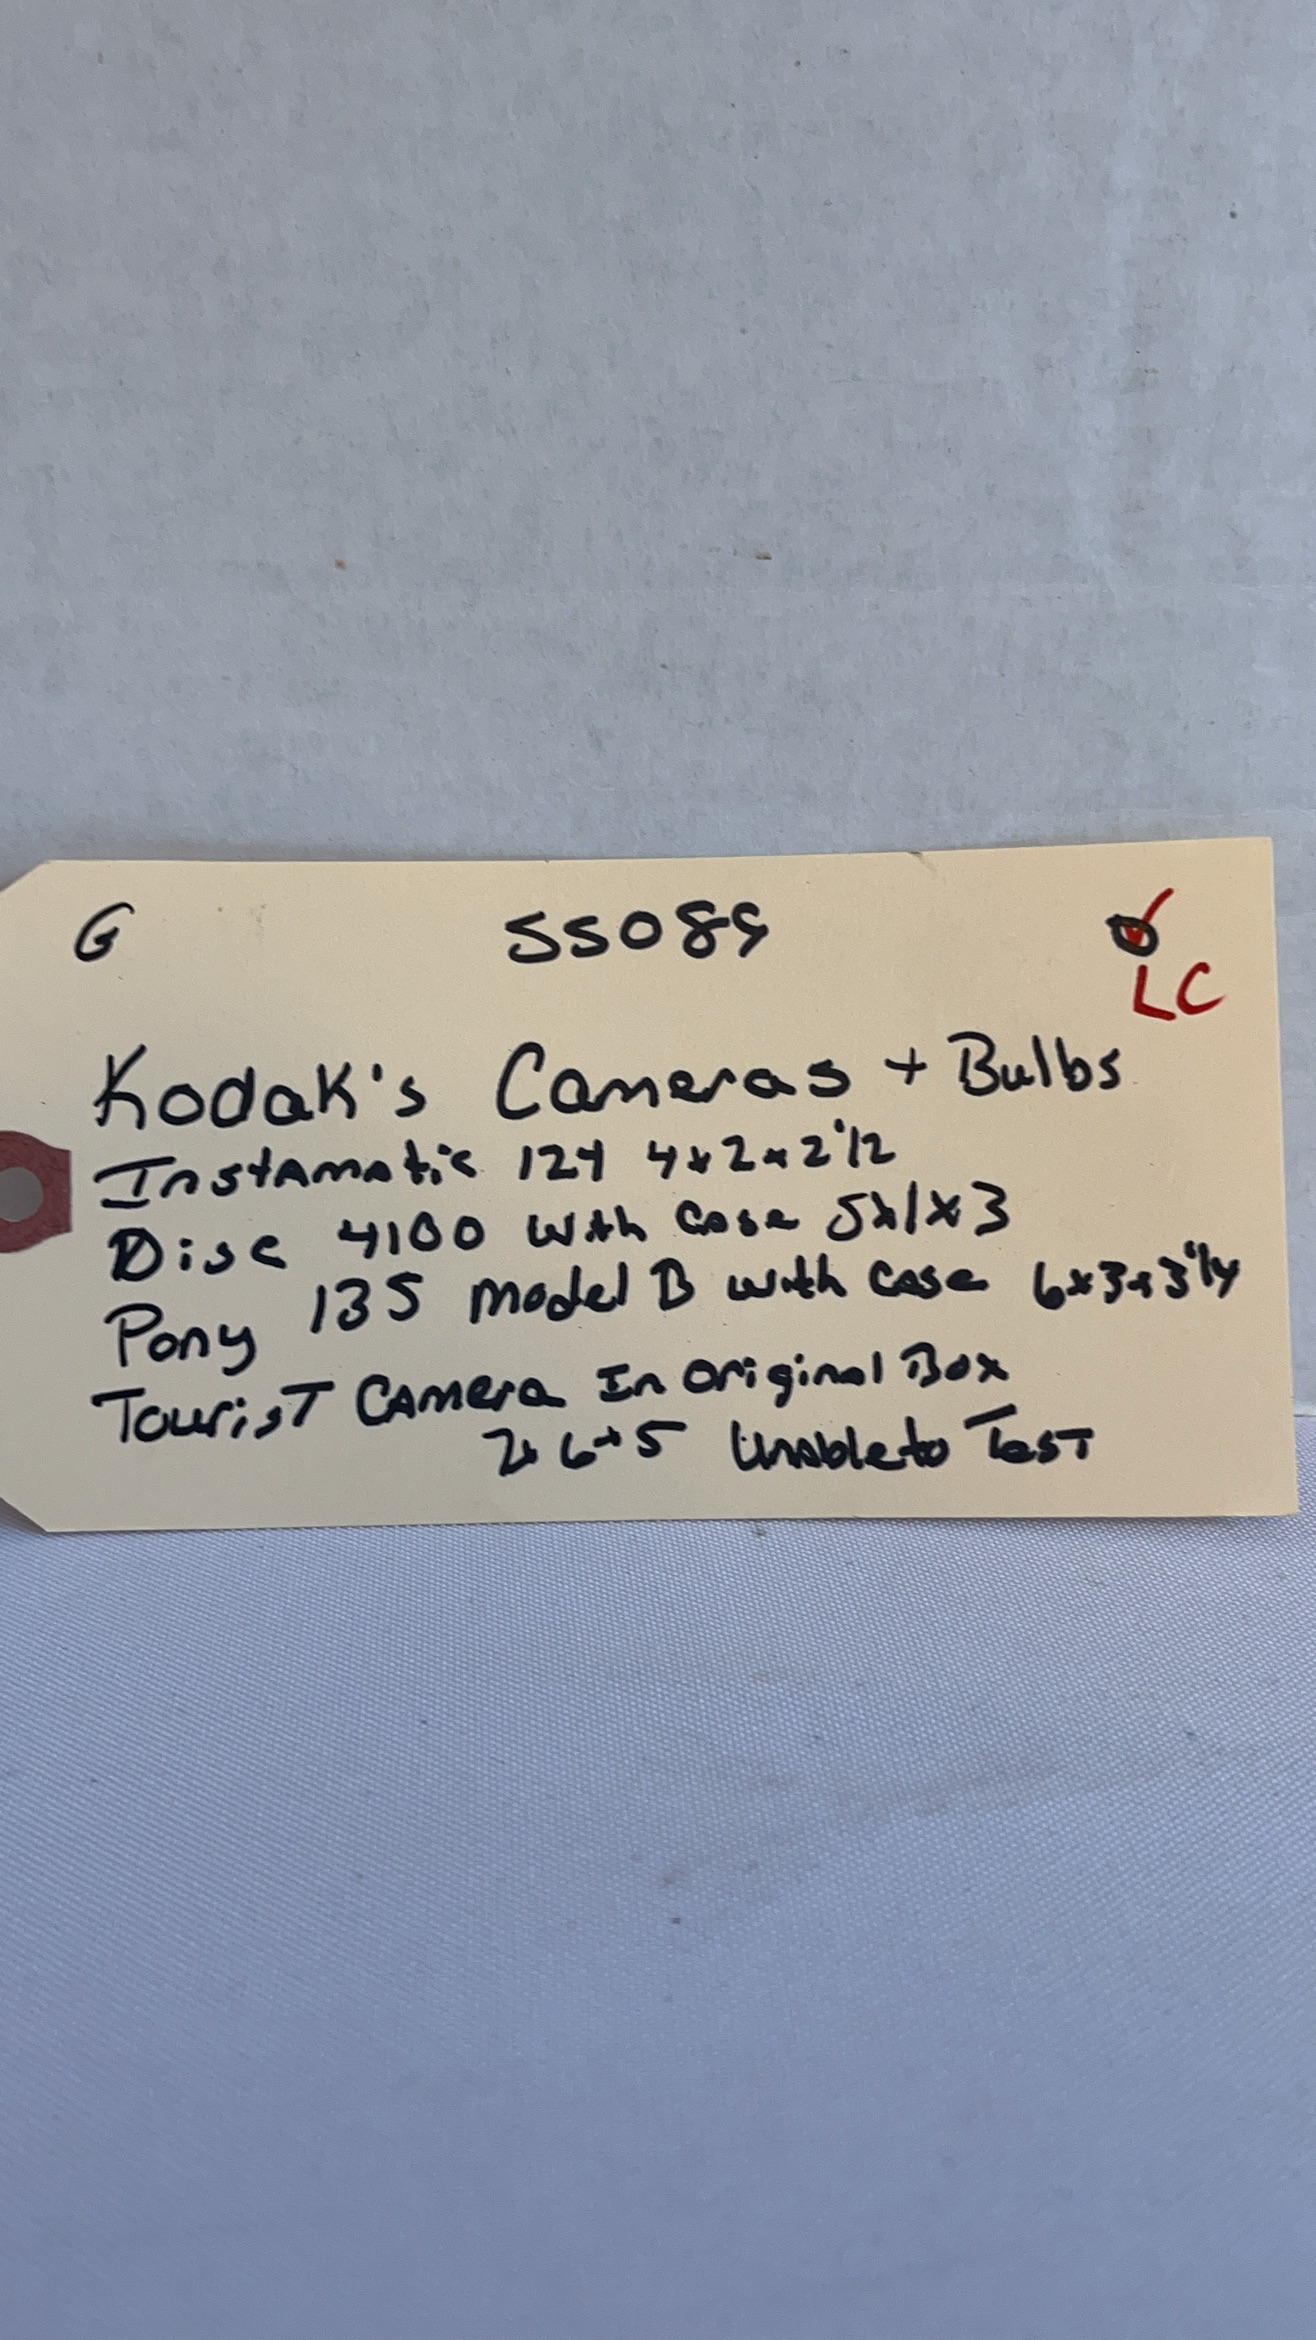 G 55089
LC
Kodak's Cameras + Bulbs
Instamatic 124 4x2x2 1/2
Disc 4100 with case 5x1x3
Pony 135 Model B with case 6x3x3 1/4
Tourist Camera In Original Box
2x6x5 Unable to Test